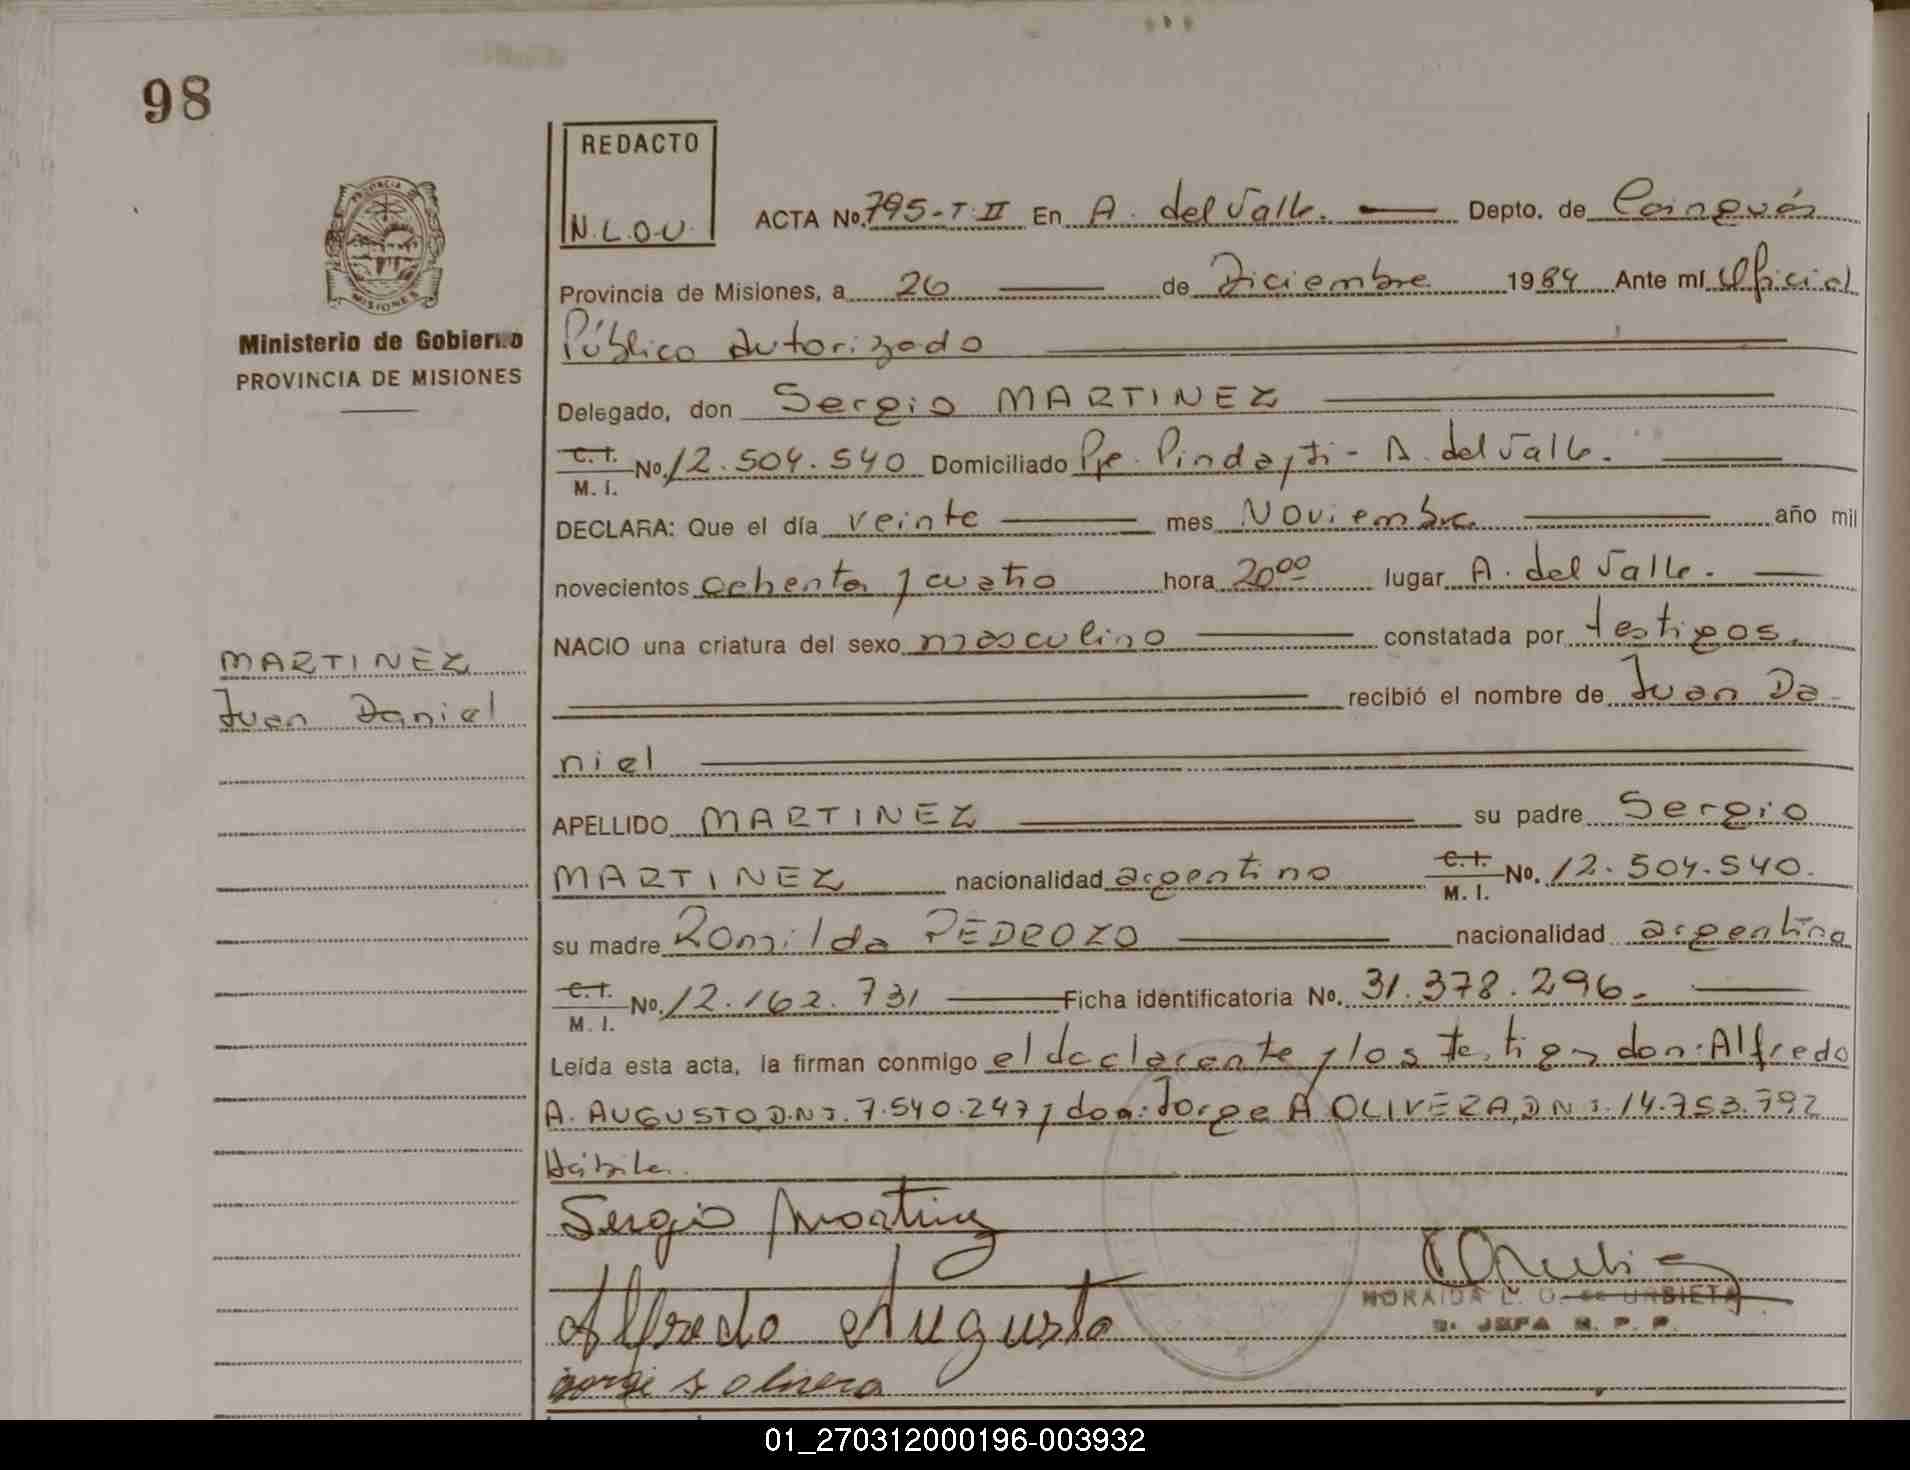 98
REDACTO
N.L.O.U.
ACTA No. 795-T.II En A. del Valle. Depto. de Cainguás
Provincia de Misiones, a 26 de Diciembre 1984 Ante mí Oficial
Ministerio de Gobierno
PROVINCIA DE MISIONES
Público Autorizado
Delegado, don Sergio MARTINEZ
C.I. M.I. No. 12.504.540 Domiciliado Pje. Pindayti - A. del Valle.
DECLARA: Que el día veinte mes Noviembre año mil
novecientos ochenta y cuatro hora 20⁰⁰ lugar A. del Valle.
NACIO una criatura del sexo masculino constatada por testigos.
MARTINEZ
Juan Daniel
recibió el nombre de Juan Da-
niel
APELLIDO MARTINEZ su padre Sergio
MARTINEZ nacionalidad argentino C.I. M.I. No. 12.504.540.
su madre Romilda PEDROZO nacionalidad argentina
C.I. M.I. No. 12.162.731 Ficha identificatoria No. 31.378.296.
Leída esta acta, la firman conmigo el declarante y los testigos don: Alfredo
A. AUGUSTO D.N.I. 7.540.247 y don: Jorge A OLIVERA, D.N.I. 14.753.792
Hábiles.
Sergio Martinez
Alfredo Augusto
jorge s olivera
NORAIDA L. O. de URBIETA
JEFA R. P. P.
01_270312000196-003932